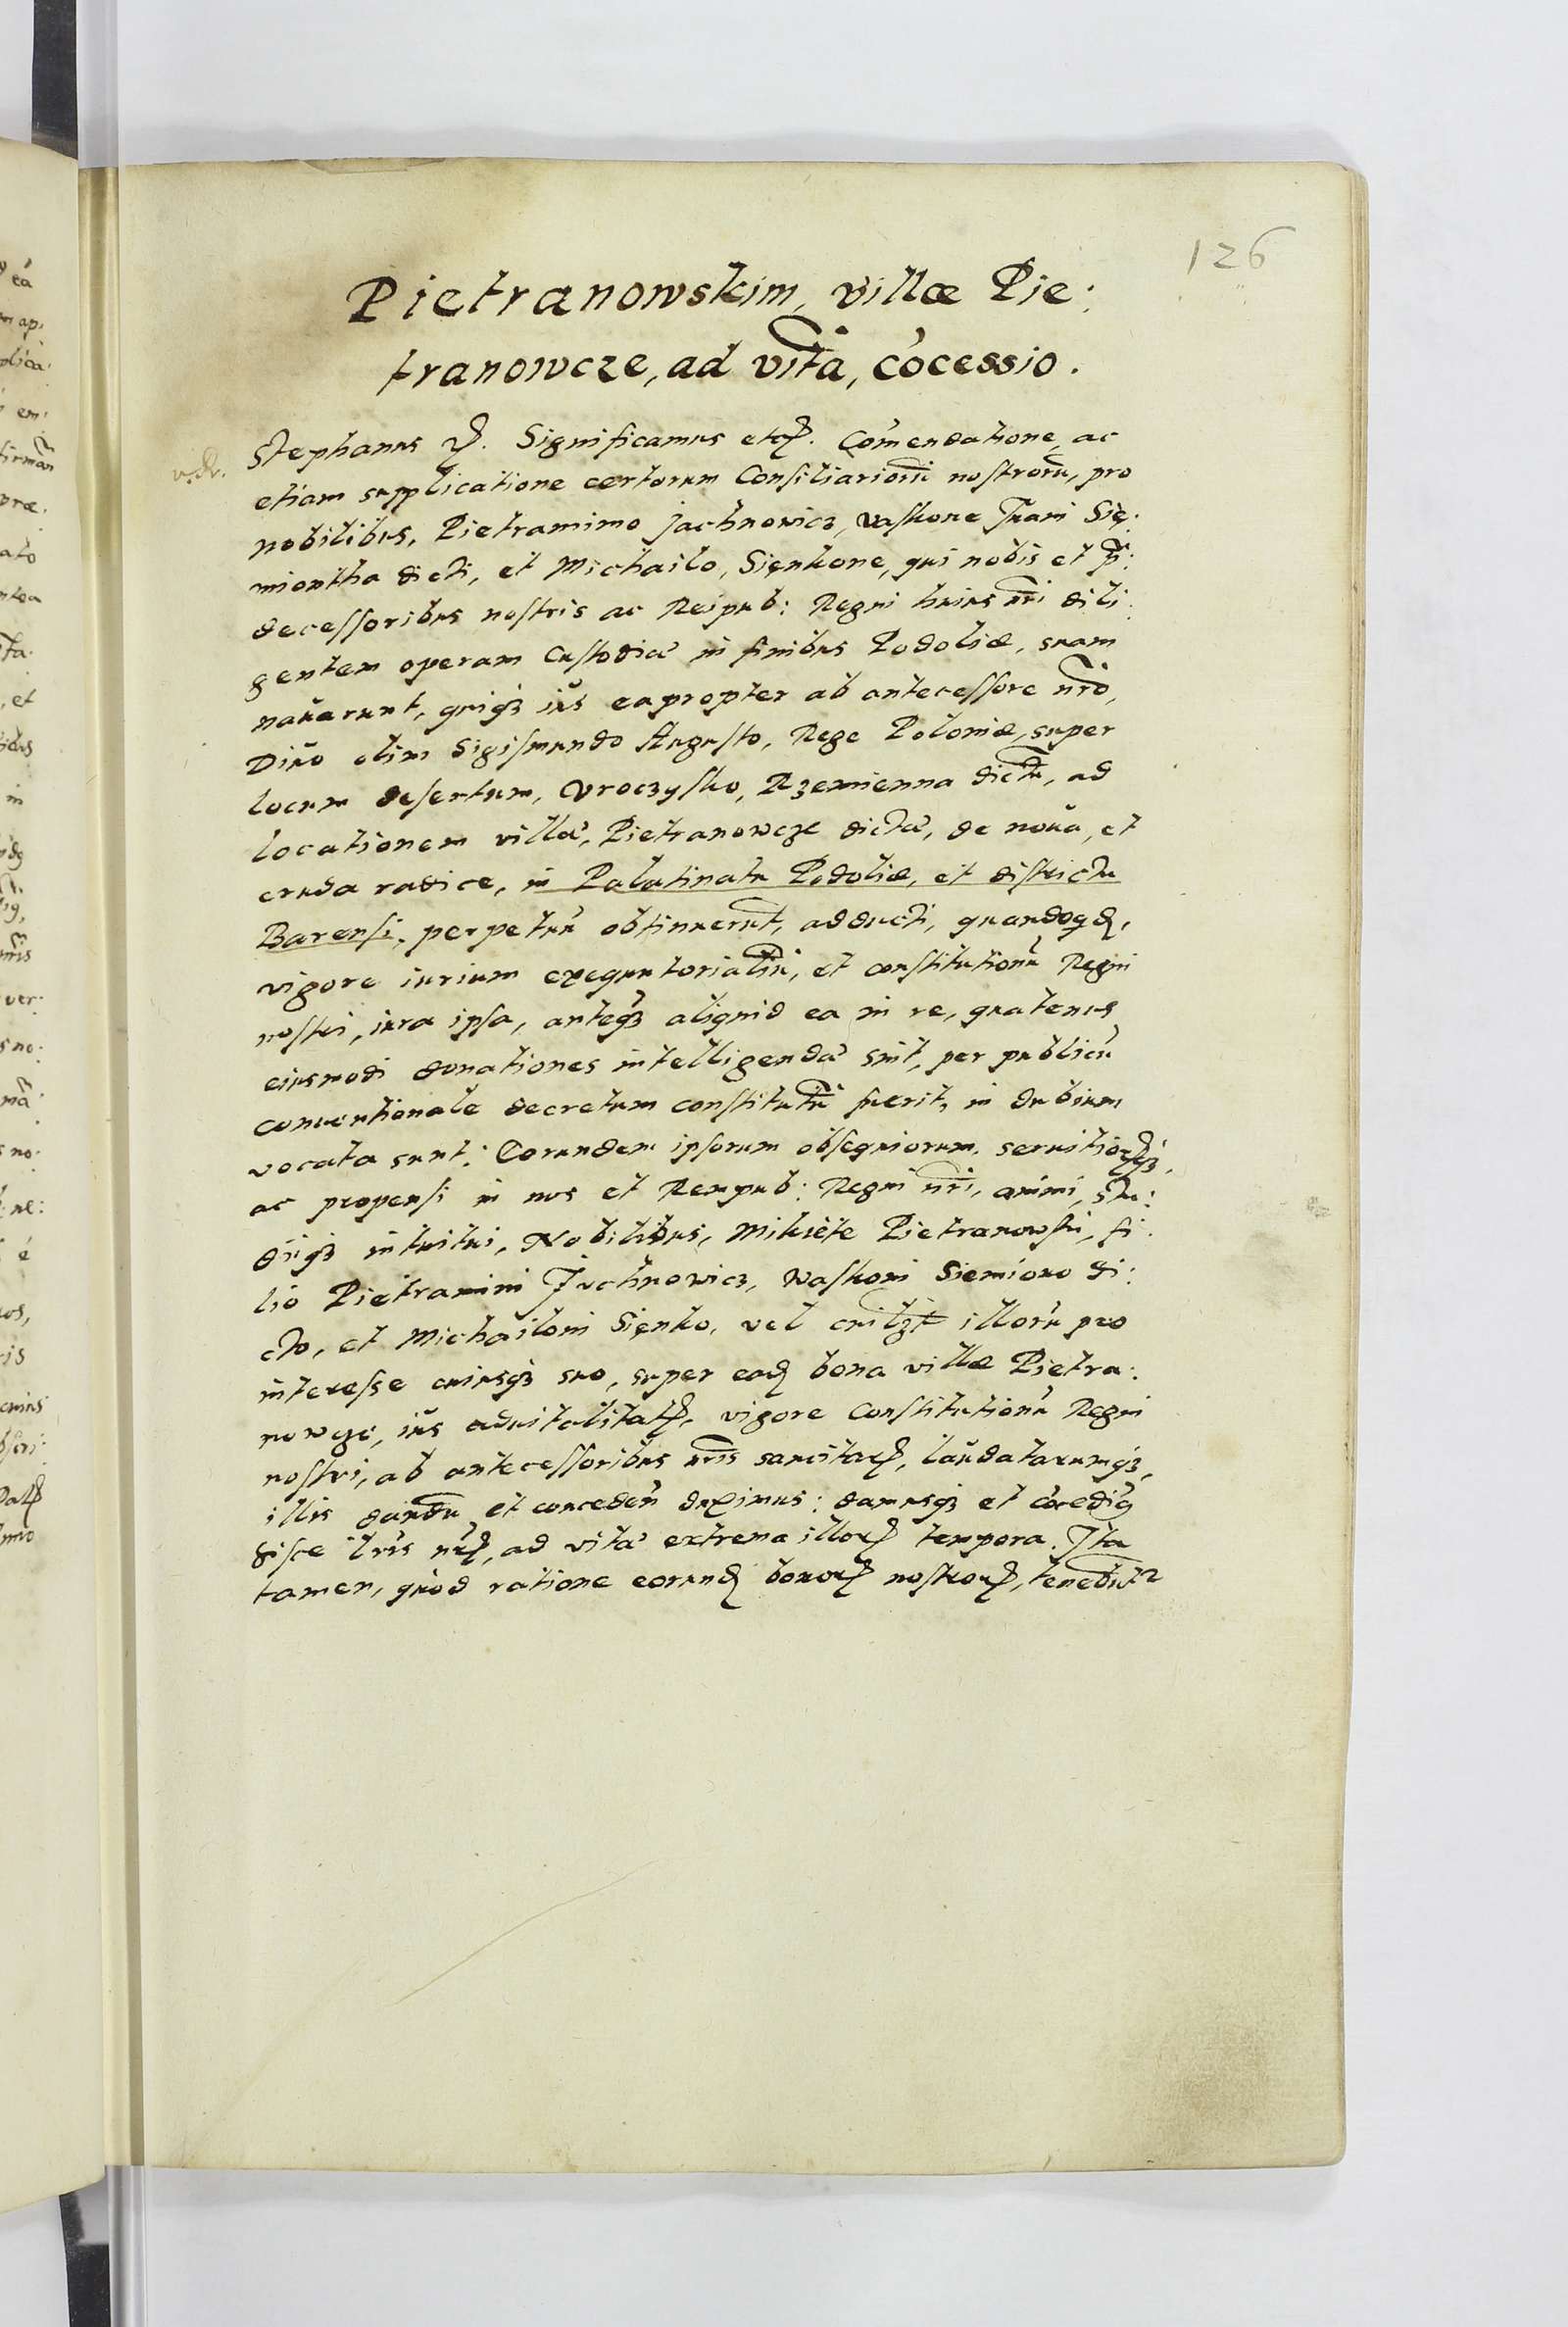 126
Pietranowskim, villæ Pie:
tranowcze, ad vitã, cõcessio.
Stephanus etc. Significamus etc. Cõmendatione, ac
etiam supplicatione certorum Consiliariorũ nostrorũ, pro
nobilibus, Pietramimo Jachnowicz, Vaskone Iwani Się:
miontha dicti, et Michailo, Sięnkone, qui nobis et p̃:
decessoribus nostris ac Reipub: Regni huius nr̃i dili:
gentem operam custodiã in finibus Podoliæ, suam
nauarunt, quiq3 ius eapropter ab antecessore nr̃o,
Diuo olim Sigismundo Augusto, Rege Poloniæ, super
locum desertum, Vroczysko, Rzemienna dictũ, ad
locationem villã, Pietranowcze dictã, de noua, et
cruda radice, in Palatinatu Podoliæ, et districtu
Barensi, perpetuũ obtinuerũt, adducti, quandoqd,
vigore iurium exequutorialiũ, et constitutionũ Regni
nostri, iura ipsa, anteq3 aliquid ea in re, quatenus
eiusmodi donationes intelligendã sint, per publicũ
conuentionale decretum constitutũ fuerit, in dubium
vocata sunt: Eorundem ipsorum obsequiorum, seruitiorq3,
ac propensi in nos et Rempub: Regni nr̃i, animi, stu:
dijq3 intuitui, Nobilibus, Mikicie Pietranowski, fi:
lio Pietramini Juchnowicz, Waskoni Siemiono di:
cto, et Michailoni Sięnko, vel cuilzt illorũ pro
interesse cuiusq3 suo, super ead bona villæ Pietra:
nowcze, ius aduitalitatis, vigore Constitutionũ Regni
nostri, ab antecessoribus nr̃is sancitar, laudatarumq3,
illis dandũ et concedendũ duximus: damusq3 et cõcedimus
hisce lr̃is nr̃is, ad vitã extrema illor tempora. Ita
tamen, quod ratione eorund bonor nostror, tenebũtr